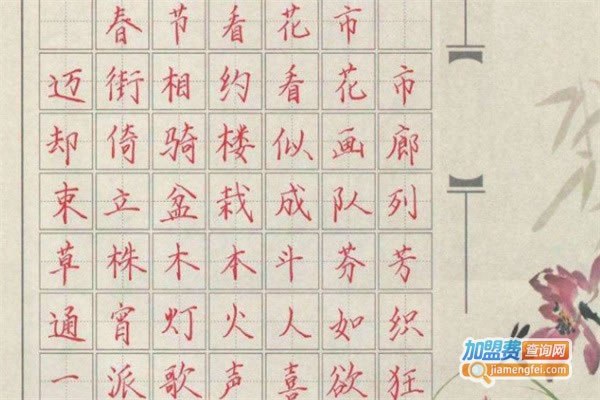 春节看花市
迈街相约看花市
却倚骑楼似画廊
束立盆栽成队列
草株木本斗芬芳
通宵灯火人如织
一派歌声喜欲狂
加盟费查询网
jiamengfei.com